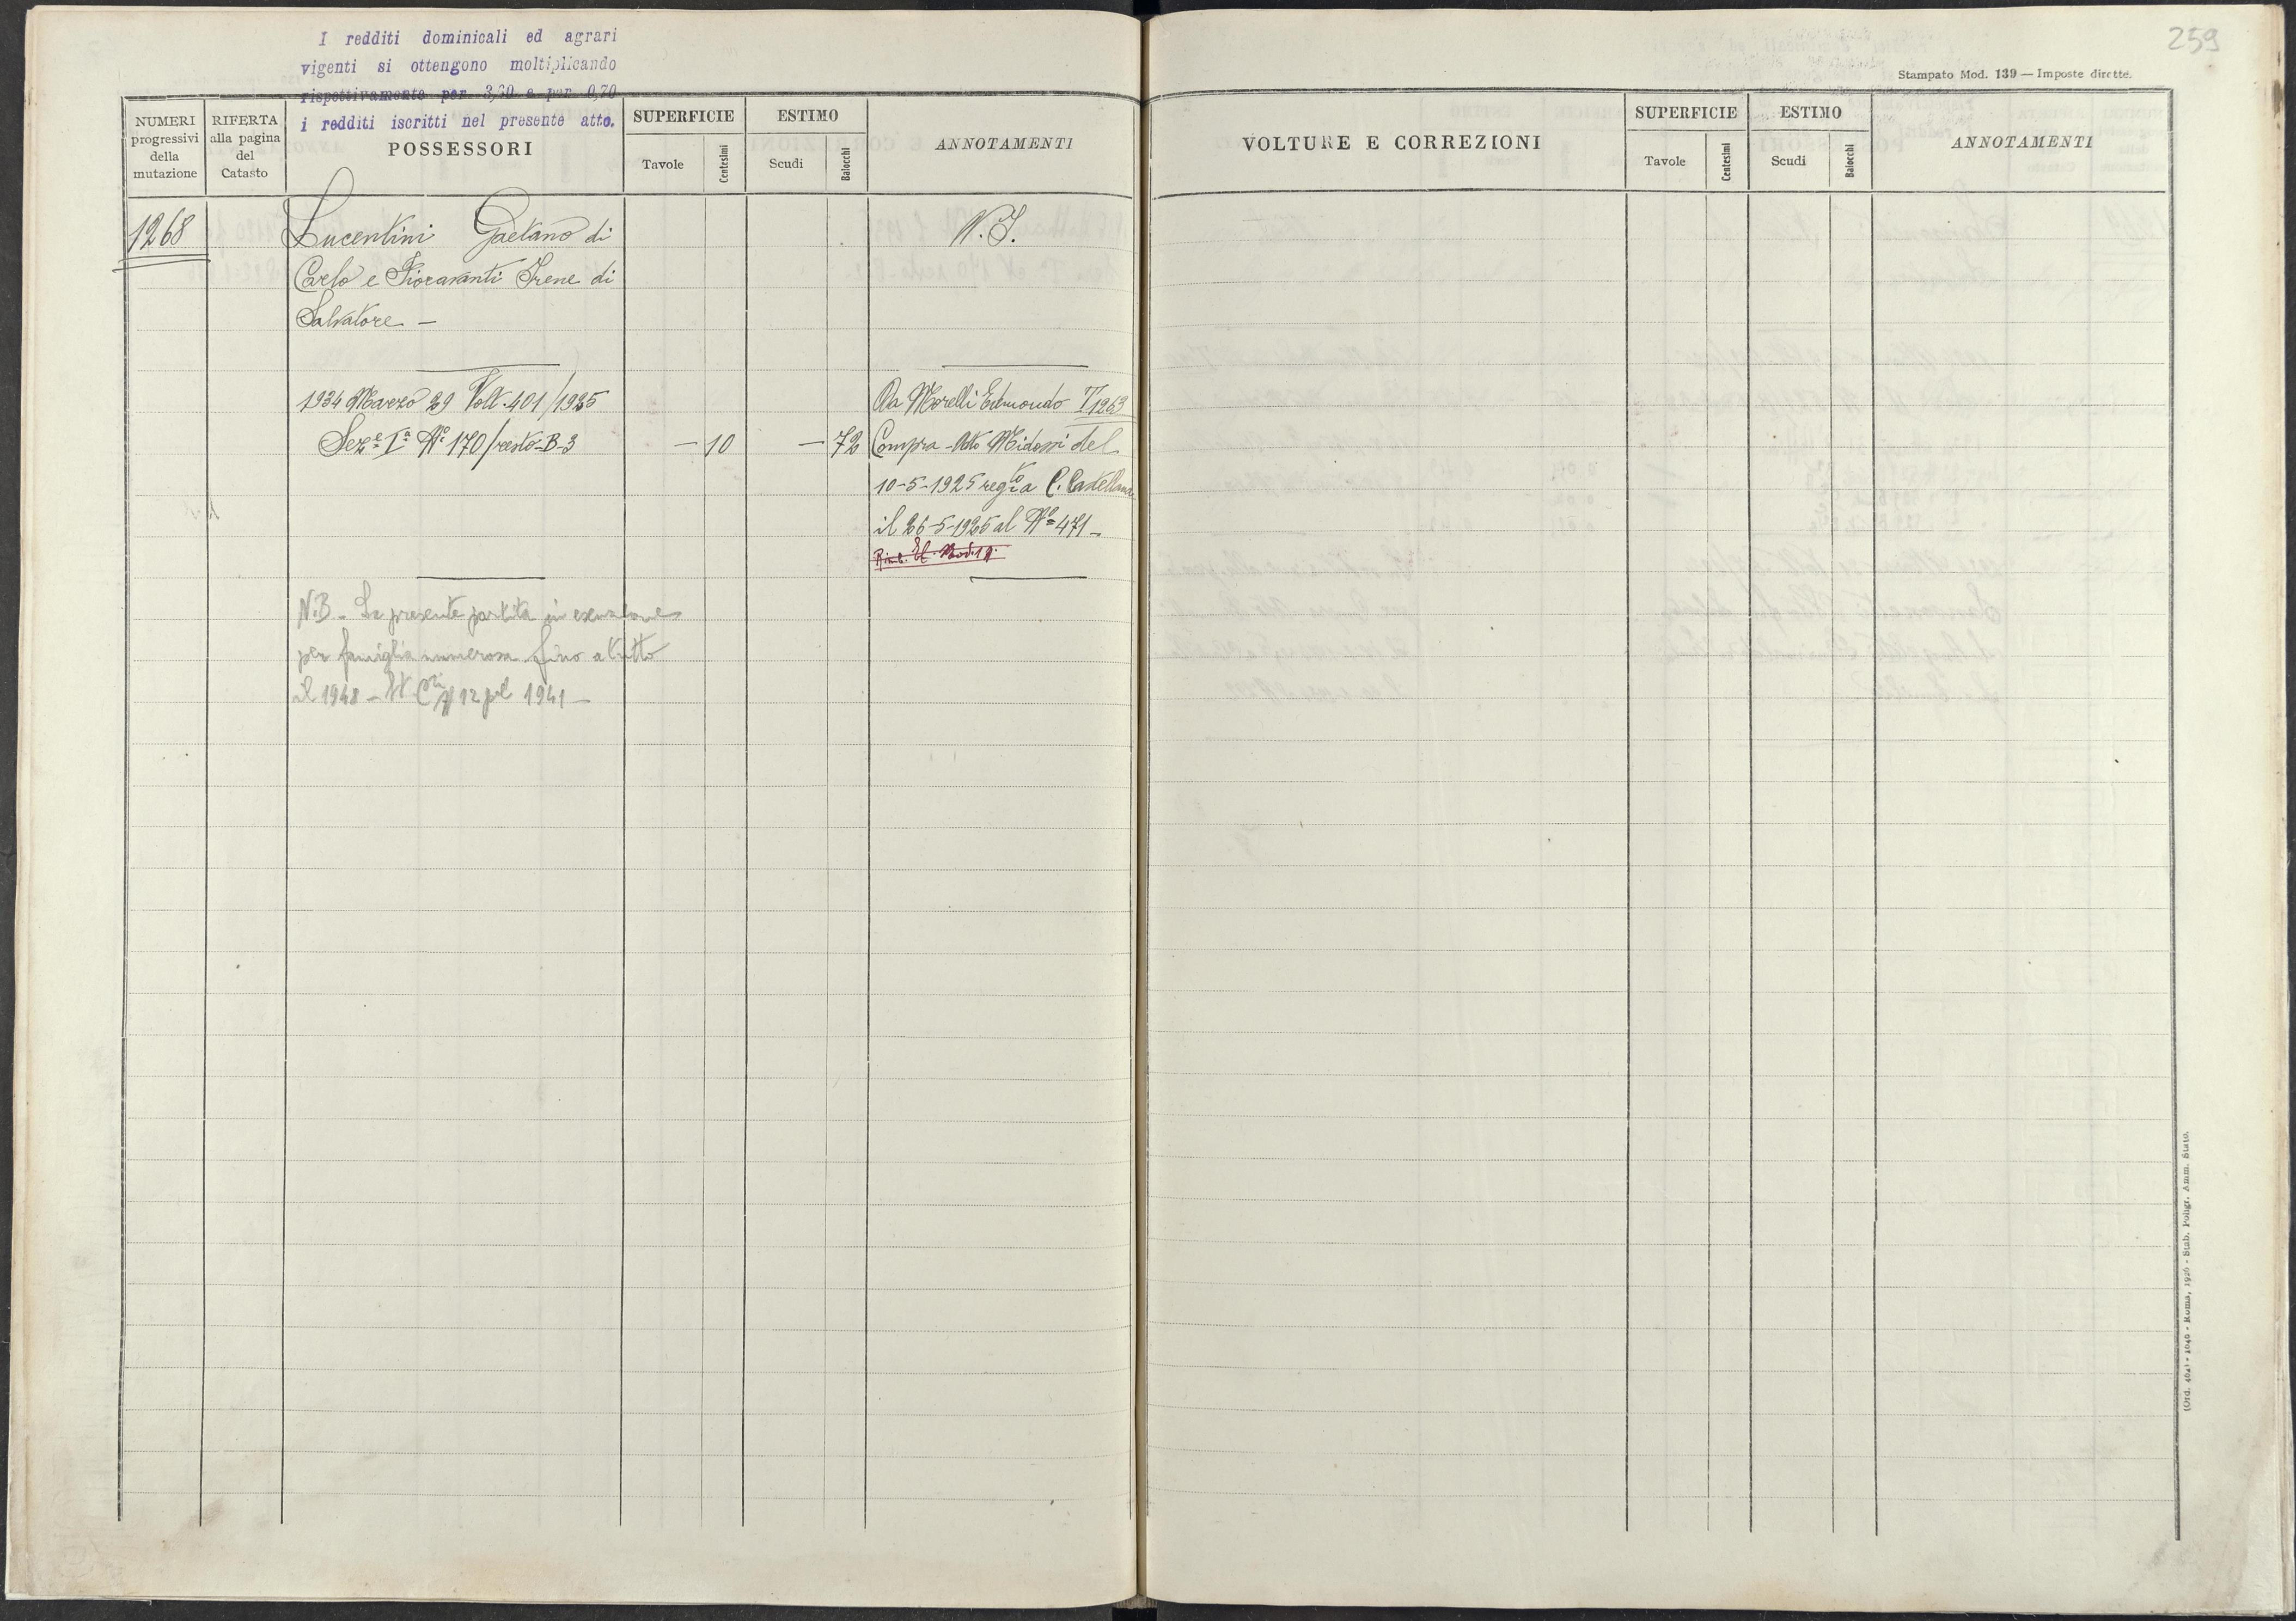 I redditi dominicali ed agrari
vigenti si ottengono moltiplicando
rispettivamente per 3,30 e per 0,70
i redditi iscritti nel presente atto.
NUMERI
progressivi
della
mutazione
RIFERTA
alla pagina
del
Catasto
POSSESSORI
SUPERFICIE
Tavole
Centesimi
ESTIMO
Scudi
Baiocchi
ANNOTAMENTI
1268
Lucentini Gaetano di
N.I.
Carlo e Fioravanti Irene di
Salvatore -
1934 Marzo 29 Volt. 401/1925
Da Morelli Edmondo T 1263
Seze Ia No 170/resto-B-3
- 10
- 72
Compra - Atto Midossi del
10-5-1925 regto a C. Castellana
il 26-5-1925 al No 471 -
Rimb. El. Mod. 19
N.B - La presente partita in esenzione
per famiglia numerosa fino a tutto
il 1948 - 12 pel 1941 -
259
Stampato Mod. 139 — Imposte dirette.
VOLTURE E CORREZIONI
SUPERFICIE
Tavole
Centesimi
ESTIMO
Scudi
Baiocchi
ANNOTAMENTI
Roma, 1926 - Stab. Poligr. Amm. Stato.